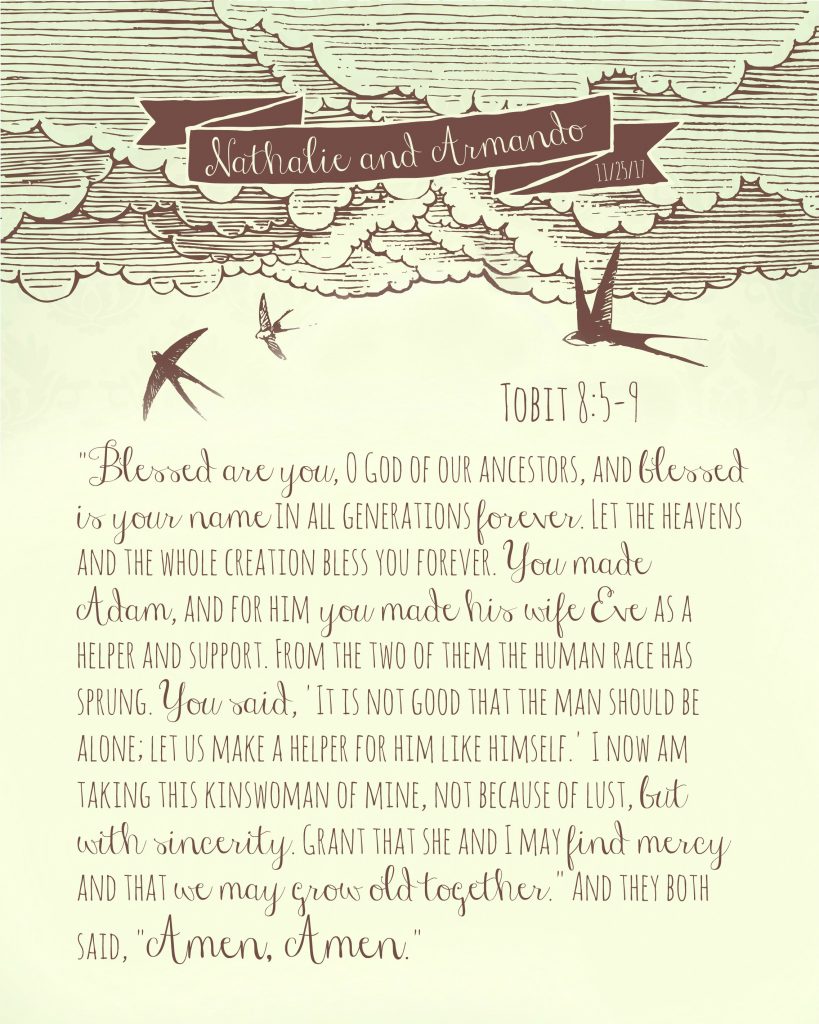 Nathalie and Armando
11/25/17
Tobit 8:5-9
"Blessed are you, O God of our ancestors, and blessed
is your name in all generations forever. Let the heavens
and the whole creation bless you forever. You made
Adam, and for him you made his wife Eve as a
helper and support. From the two of them the human race has
sprung. You said, 'It is not good that the man should be
alone; let us make a helper for him like himself.' I now am
taking this kinswoman of mine, not because of lust, but
with sincerity. Grant that she and I may find mercy
and that we may grow old together." And they both
said, "Amen, Amen."